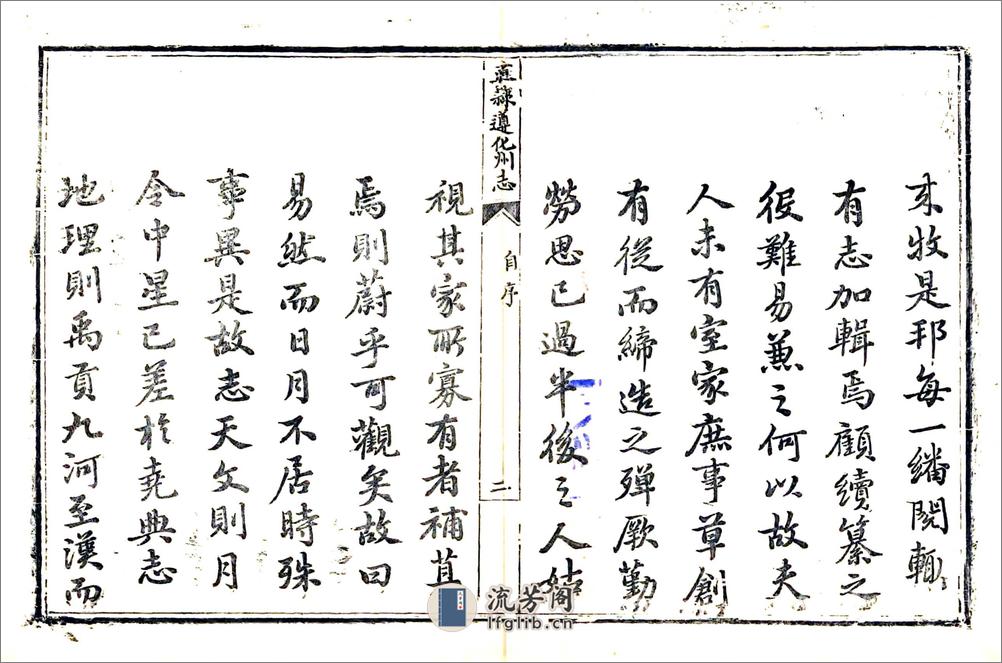 來牧是邦每一繙閱輒
有志加輯焉顧續纂之
役難易兼之何以故夫
人未有室家庶事草創
有從而締造之殫厥勤
勞思已過半後之人結
直隸遵化州志
自序
二
視其家所寡有者補苴
焉則蔚乎可觀矣故曰
易然而日月不居時殊
事異是故志天文則月
令中星已差於堯典志
地理則禹貢九河至漢而
流芳阁
lfglib.cn